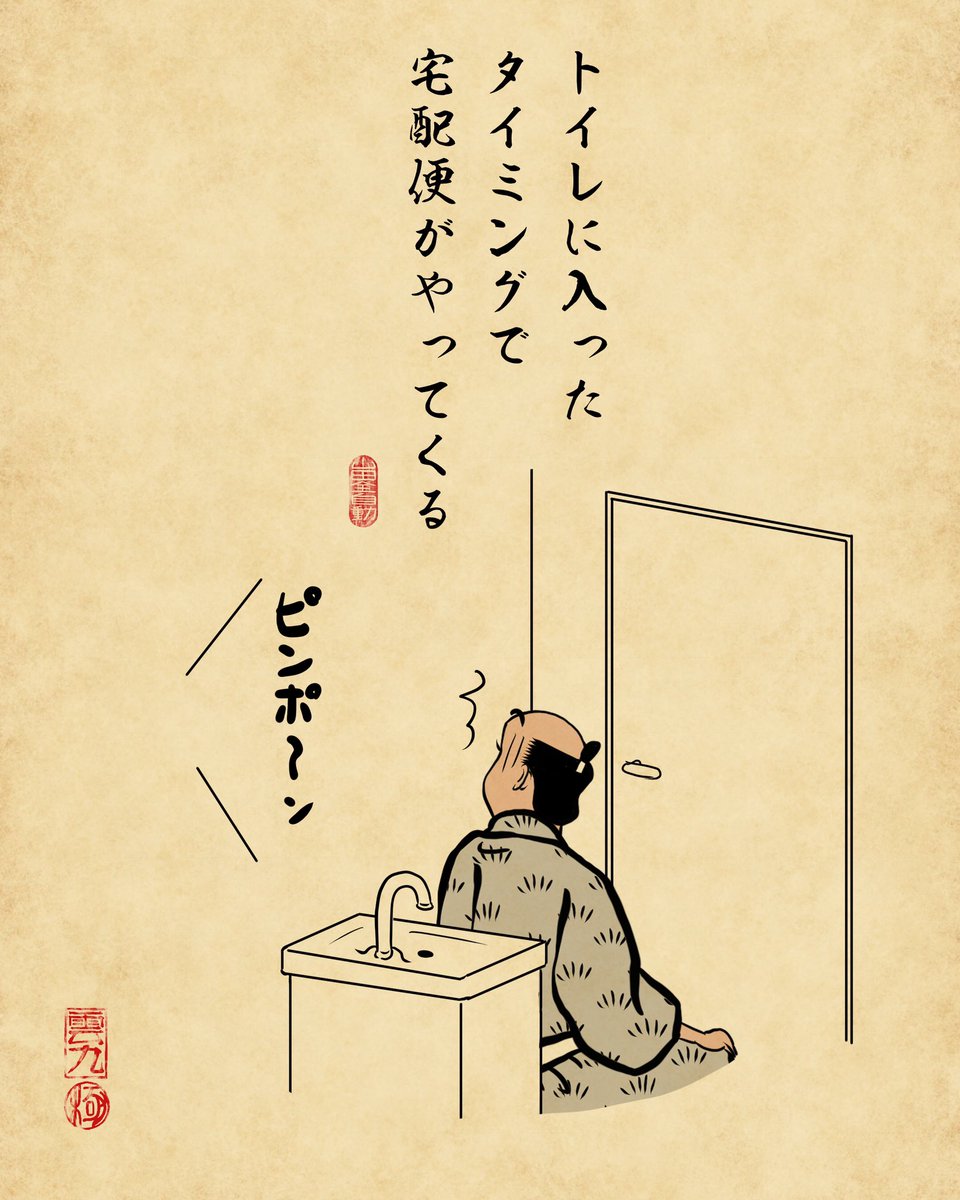 トイレに入った
タイミングで
宅配便がやってくる
ピンポ〜ン